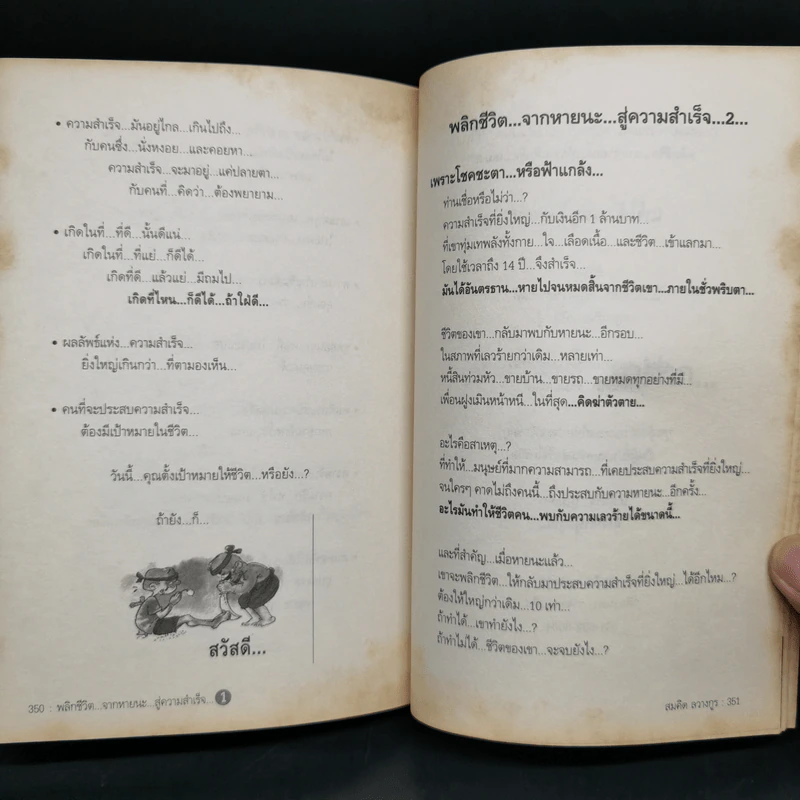 • ความสำเร็จ...มันอยู่ไกล...เกินไปถึง...
กับคนซึ่ง...นั่งหงอย...และคอยหา...
ความสำเร็จ...จะมาอยู่...แค่ปลายตา...
กับคนที่...คิดว่า...ต้องพยายาม...
• เกิดในที่...ที่ดี...นั้นดีแน่...
เกิดในที่...ที่แย่...ก็ดีได้...
เกิดที่ดี...แล้วแย่...มีถมไป...
เกิดที่ไหน...ก็ดีได้...ถ้าใฝ่ดี...
• ผลลัพธ์แห่ง...ความสำเร็จ...
ยิ่งใหญ่เกินกว่า...ที่ตามองเห็น...
• คนที่จะประสบความสำเร็จ...
ต้องมีเป้าหมายในชีวิต...
วันนี้...คุณตั้งเป้าหมายให้ชีวิต...หรือยัง...?
ถ้ายัง...ก็...
สวัสดี...
350 : พลิกชีวิต...จากหายนะ...สู่ความสำเร็จ... 1
พลิกชีวิต...จากหายนะ...สู่ความสำเร็จ...2...
เพราะโชคชะตา...หรือฟ้าแกล้ง...
ท่านเชื่อหรือไม่ว่า...?
ความสำเร็จที่ยิ่งใหญ่...กับเงินอีก 1 ล้านบาท...
ที่เขาทุ่มเทพลังทั้งกาย...ใจ...เลือดเนื้อ...และชีวิต...เข้าแลกมา...
โดยใช้เวลาถึง 14 ปี...จึงสำเร็จ...
มันได้อันตรธาน...หายไปจนหมดสิ้นจากชีวิตเขา...ภายในชั่วพริบตา...
ชีวิตของเขา...กลับมาพบกับหายนะ...อีกรอบ...
ในสภาพที่เลวร้ายกว่าเดิม...หลายเท่า...
หนี้สินท่วมหัว...ขายบ้าน...ขายรถ...ขายหมดทุกอย่างที่มี...
เพื่อนฝูงเมินหน้าหนี...ในที่สุด...คิดฆ่าตัวตาย...
อะไรคือสาเหตุ...?
ที่ทำให้...มนุษย์ที่มากความสามารถ...ที่เคยประสบความสำเร็จที่ยิ่งใหญ่...
จนใครๆ คาดไม่ถึงคนนี้...ถึงประสบกับความหายนะ...อีกครั้ง...
อะไรมันทำให้ชีวิตคน...พบกับความเลวร้ายได้ขนาดนี้...
และที่สำคัญ...เมื่อหายนะแล้ว...
เขาจะพลิกชีวิต...ให้กลับมาประสบความสำเร็จที่ยิ่งใหญ่...ได้อีกไหม...?
ต้องให้ใหญ่กว่าเดิม...10 เท่า...
ถ้าทำได้...เขาทำยังไง...?
ถ้าทำไม่ได้...ชีวิตของเขา...จะจบยังไง...?
สมคิด ลวางกูร : 351